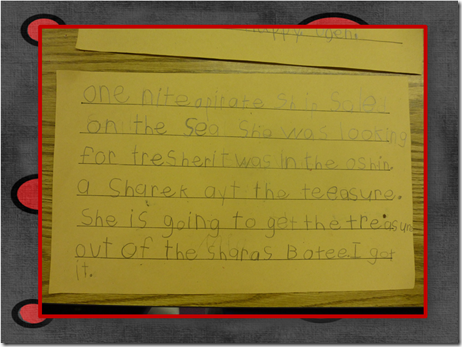 happy
one nite apirate Ship Sale
on the Sea She was loosing
for tresherit was in the oshin.
a Sharek ayt the teeasure.
She is going to get the treasure
out of the Sharas Botee.I got
it.